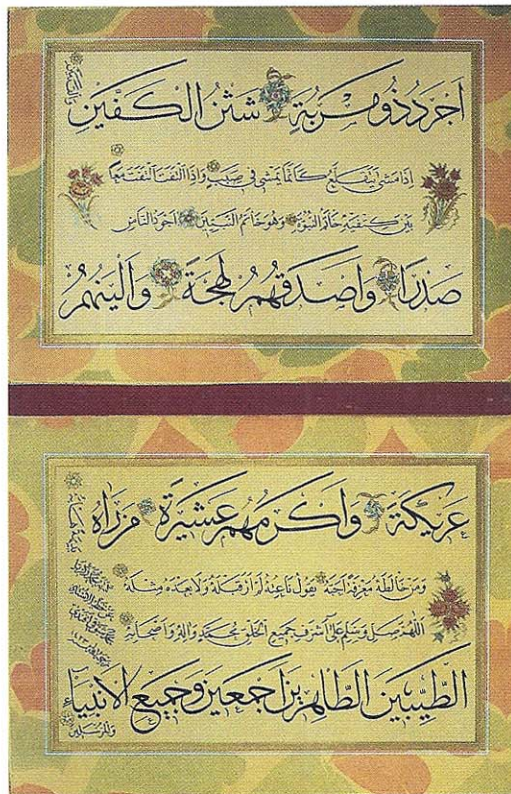 اجرد ذو مسربة شثن الكفين
والقدمين
اذا مشى يتقلع كانما يمشي في صبب واذا التفت التفت معا
بين كتفيه خاتم النبوة وهو خاتم النبيين اجود الناس
صدرا واصدقهم لهجة والينهم
عريكة واكرمهم عشيرة من راه
بديهة هابه
ومن خالطه معرفة احبه يقول ناعته لم ار قبله ولا بعده مثله
اللهم صل وسلم على اشرف جميع الخلق محمد واله واصحابه
الطيبين الطاهرين اجمعين وجميع الانبياء
والمرسلين